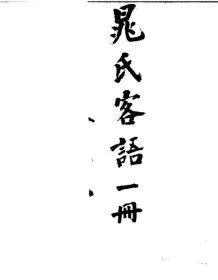 晁氏客語一冊